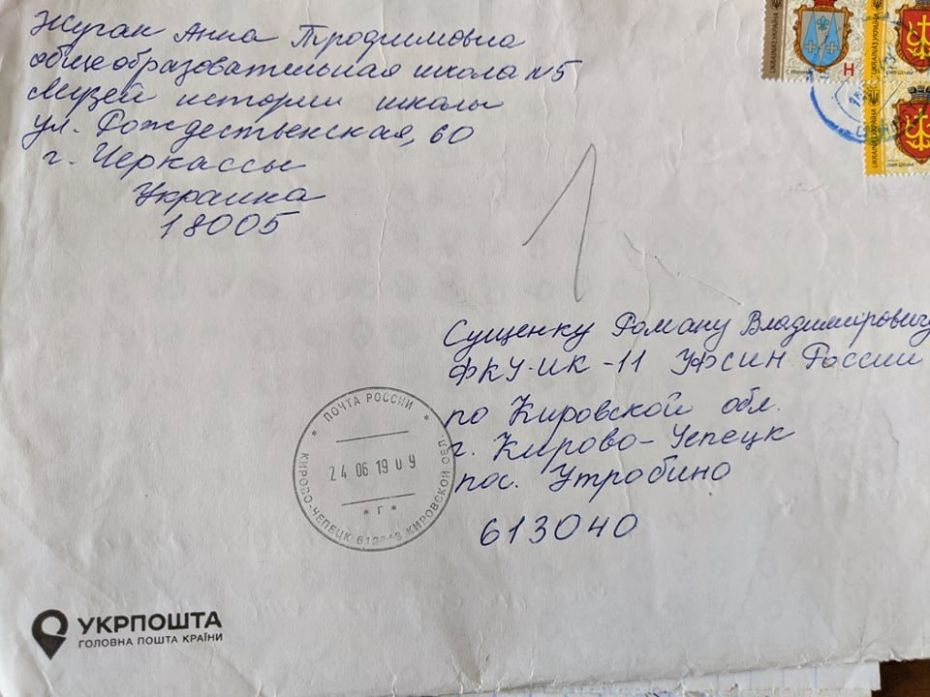 Жуган Анна Трофимовна
общеобразовательная школа №5
Музей истории школы
ул. Рождественская, 60
г. Черкассы
Украина
18005
UKRAINA УКРАЇНА
Н
UKRAINA УКРАЇНА
UKRAINA УКРАЇНА
1
Сущенку Роману Владимировичу
ФКУ-ИК-11 УФСИН России
по Кировской обл.
г. Кирово-Чепецк
пос. Утробино
613040
* ПОЧТА РОССИИ *
24 06 19 09
* Г *
КИРОВО-ЧЕПЕЦК КИРОВСКОЙ ОБЛ.
УКРПОШТА
ГОЛОВНА ПОШТА КРАЇНИ